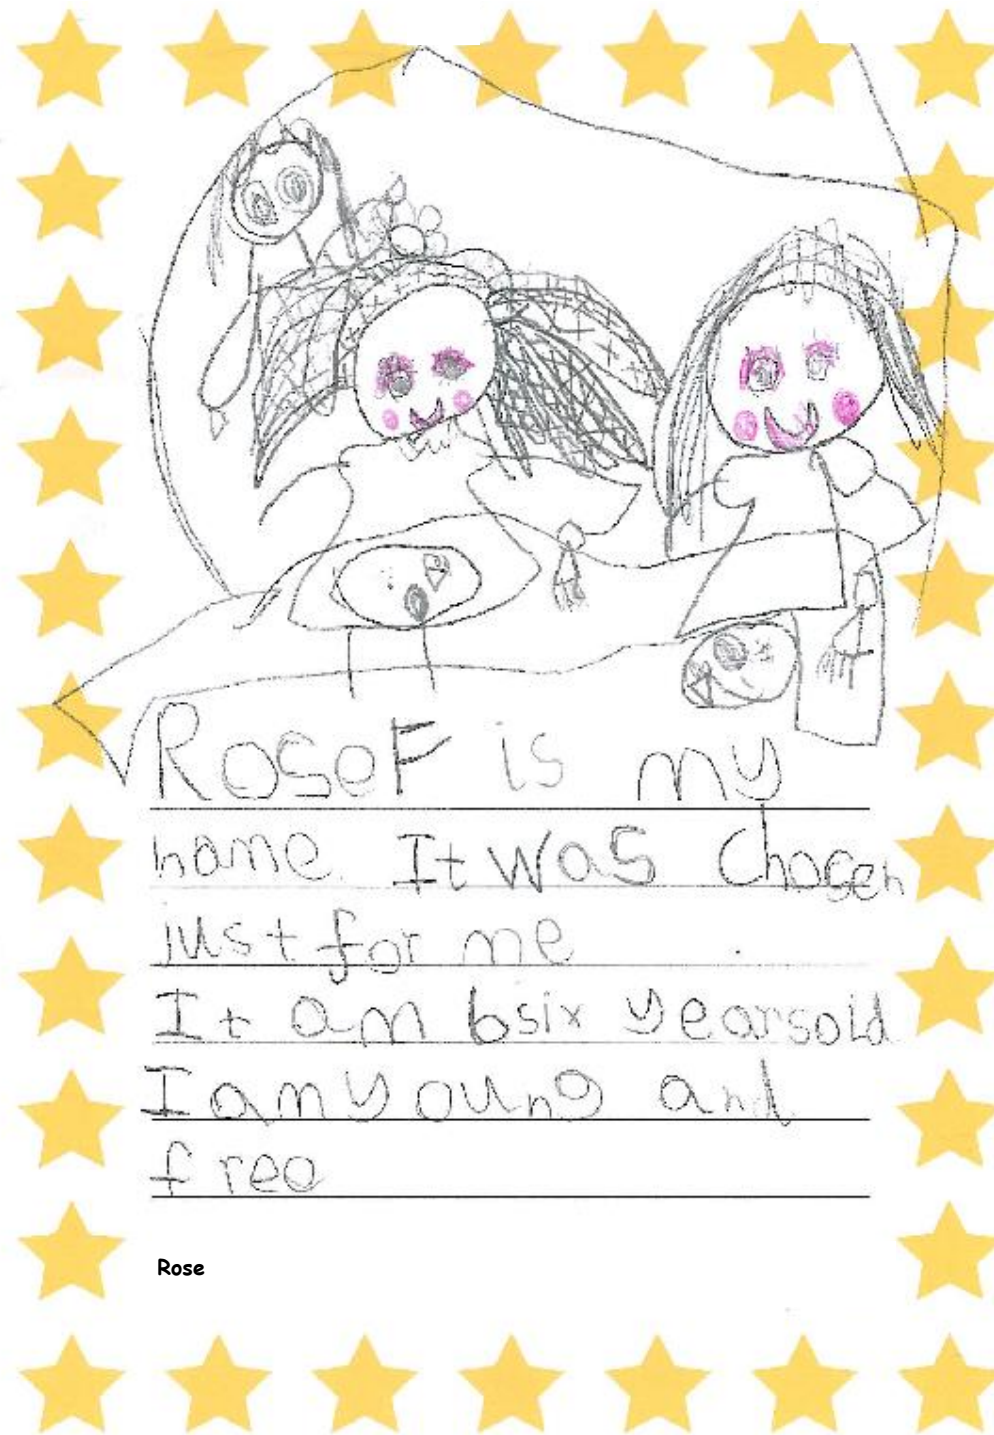 RoseF is my
name. It was chosen
just for me
It am 6six yearsold
I amyoung and
free
Rose